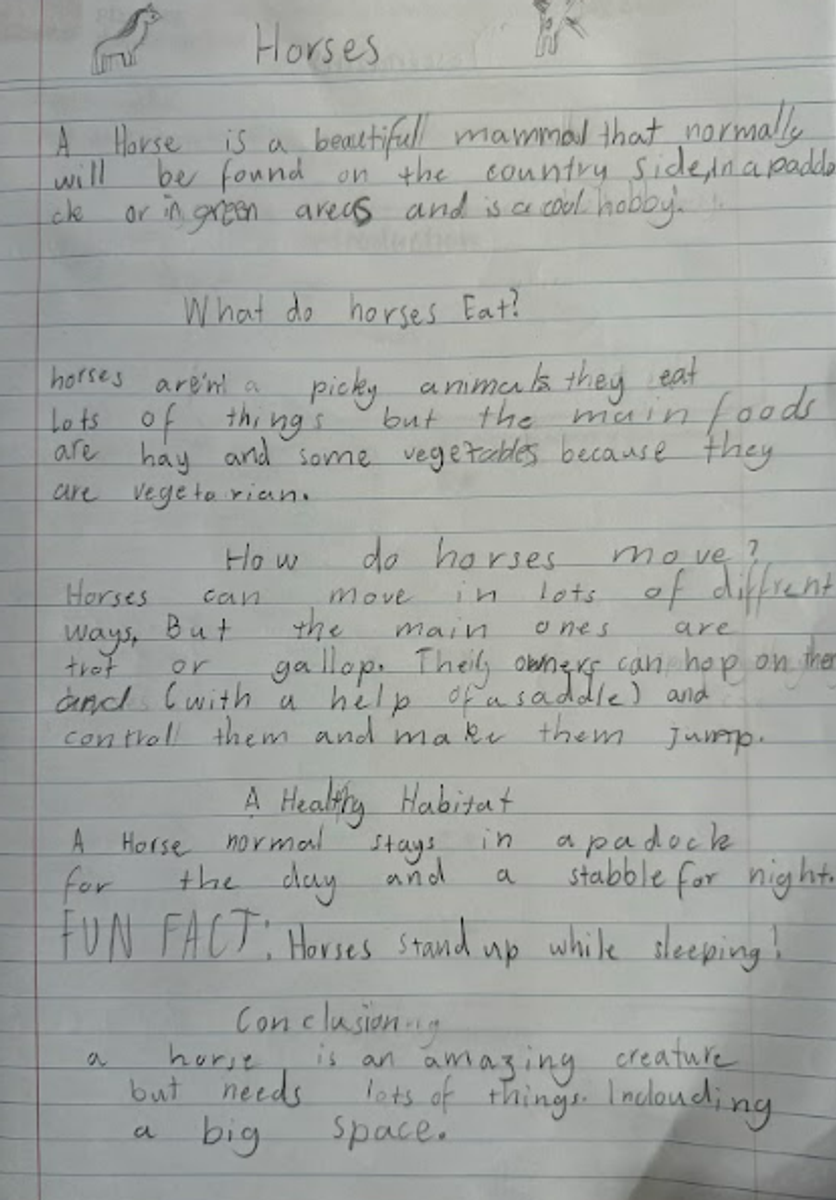 Horses
A Horse is a beautifull mammal that normally
will be found on the country side, in a paddo
ck or in green areas and is a cool hobby.
What do horses Eat?
horses aren't a picky animals they eat
Lots of things but the main foods
are hay and some vegetables because they
are vegetarian.
How do horses move?
Horses can move in lots of diffrent
ways, But the main ones are
trot or gallop. Their owners can hop on them
and (with a help of a saddle) and
controll them and make them jump.
A Healthy Habitat
A Horse normal stays in a padock
for the day and a stabble for night.
FUN FACT: Horses stand up while sleeping!
Conclusion
a horse is an amazing creature
but needs lots of things. Inclouding
a big space.